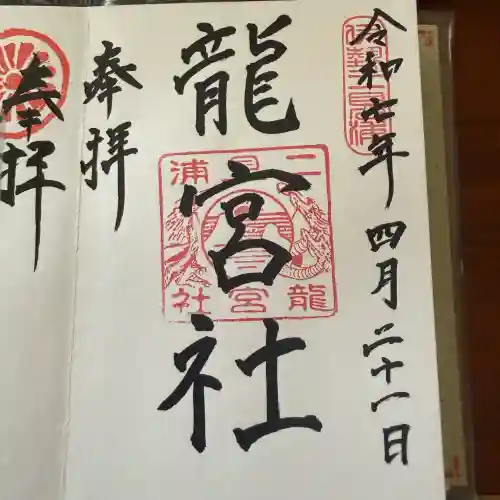 令和七年 四月二十一日
伊勢二見浦
龍宮社
二見浦
龍宮社
奉拝
奉拝